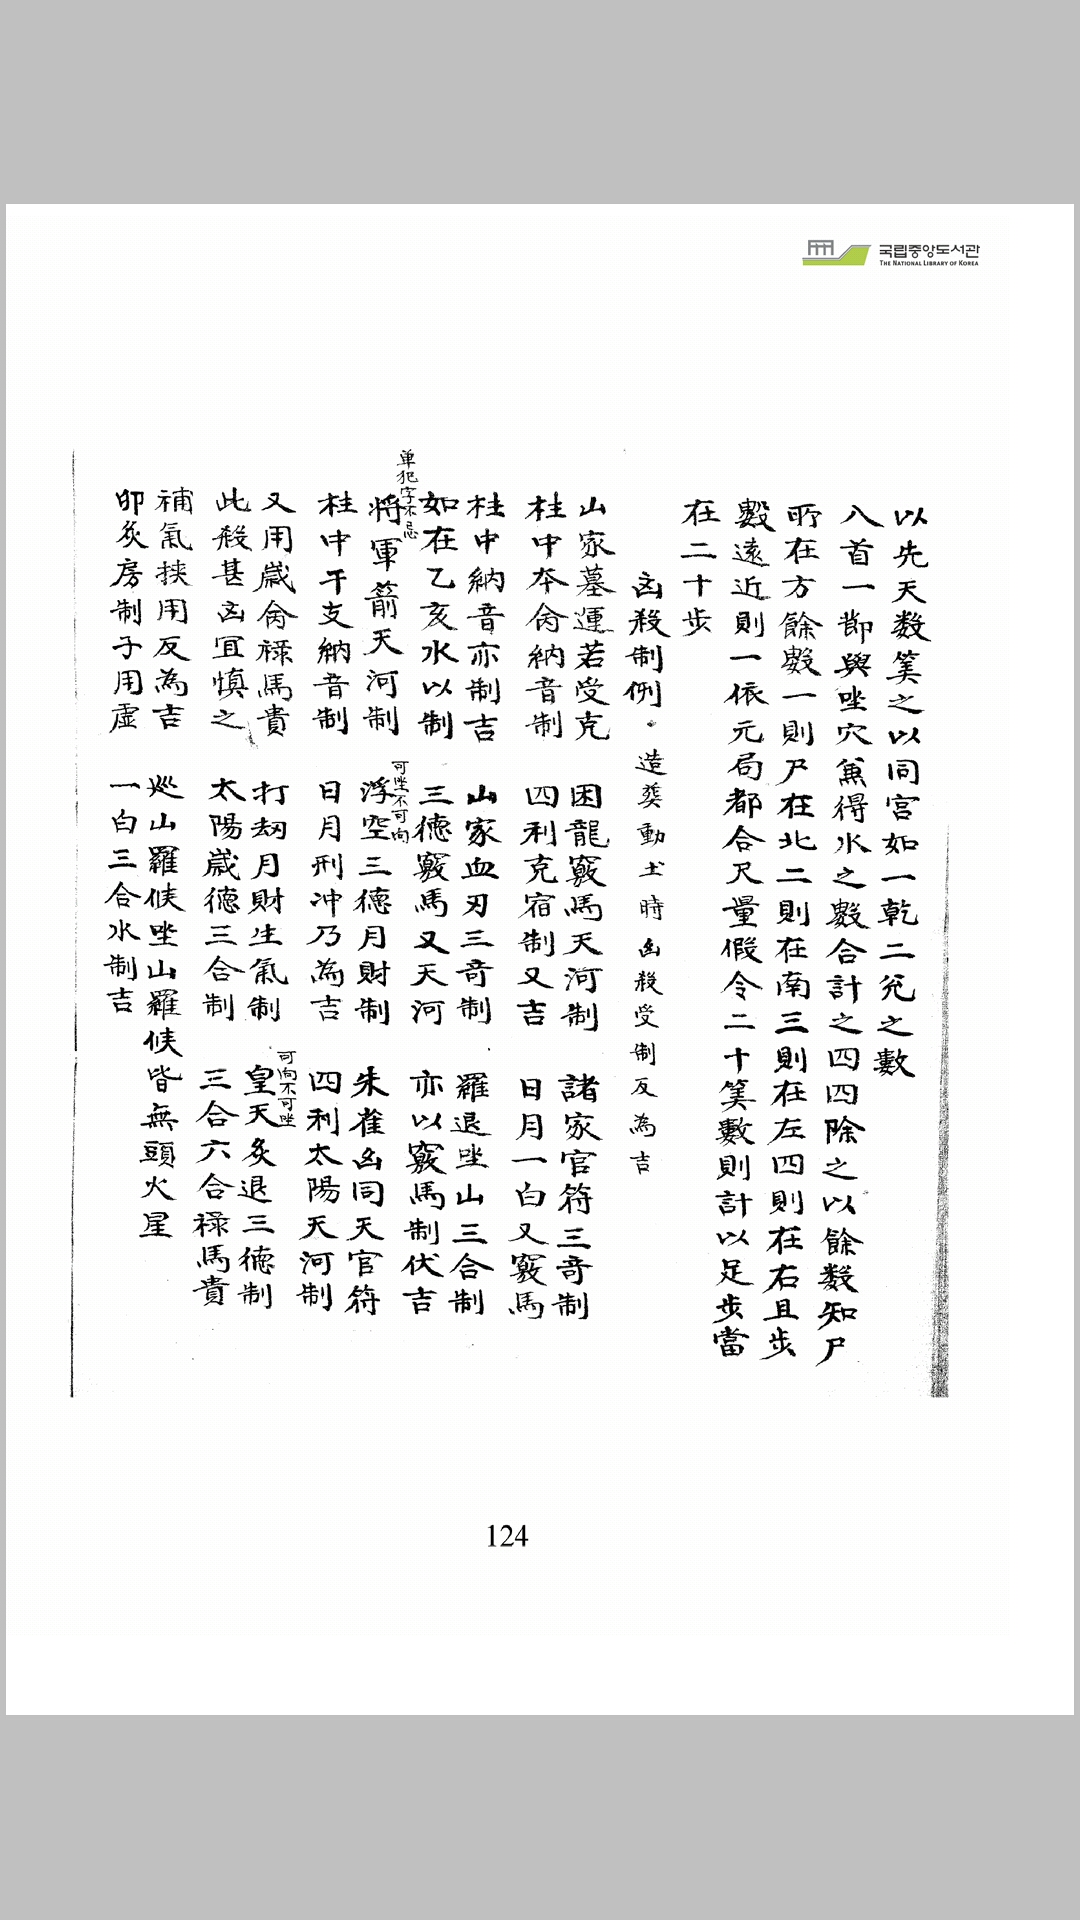 국립중앙도서관
THE NATIONAL LIBRARY OF KOREA
以先天数筭之以同宫如一乾二兊之數
八首一節與坐穴兼得水之數合計之四四除之以餘数知尸
所在方餘數一則尸在北二則在南三則在左四則在右且步
數遠近則一依元局都合尺量假令二十筭數則計以足步當
在二十步
凶殺制例・造葬動土時凶殺受制反為吉
山家墓運若受克 困龍竅馬天河制 諸家官符三竒制
柱中本侖納音制 四利克宿制又吉 日月一白又竅馬
柱中納音亦制吉 山家血刃三竒制 羅退坐山三合制
如在乙亥水以制 三德竅馬又天河 亦以竅馬制伏吉
单犯字不忌
将軍箭天河制 浮空三德月財制 朱雀凶同天官符
可坐不可向
柱中干支納音制 日月刑冲乃為吉 四利太陽天河制
又用歲侖祿馬貴 打刼月財生氣制 皇天炙退三德制
可向不可坐
此殺甚凶宜慎之 太陽歲德三合制 三合六合祿馬貴
補氣挾用反為吉 巡山羅候坐山羅候皆無頭火星
卯炙房制子用虛 一白三合水制吉
124